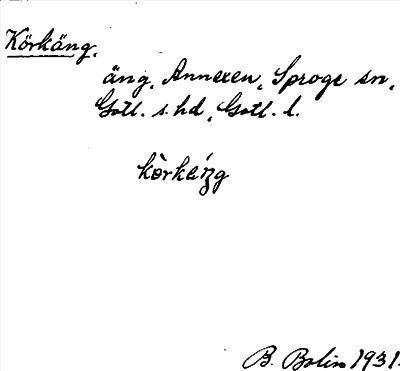 Körkäng.
äng, Annexen, Sproge sn,
Gotl. s. hd, Gotl. l.
B. Bolin 1931.